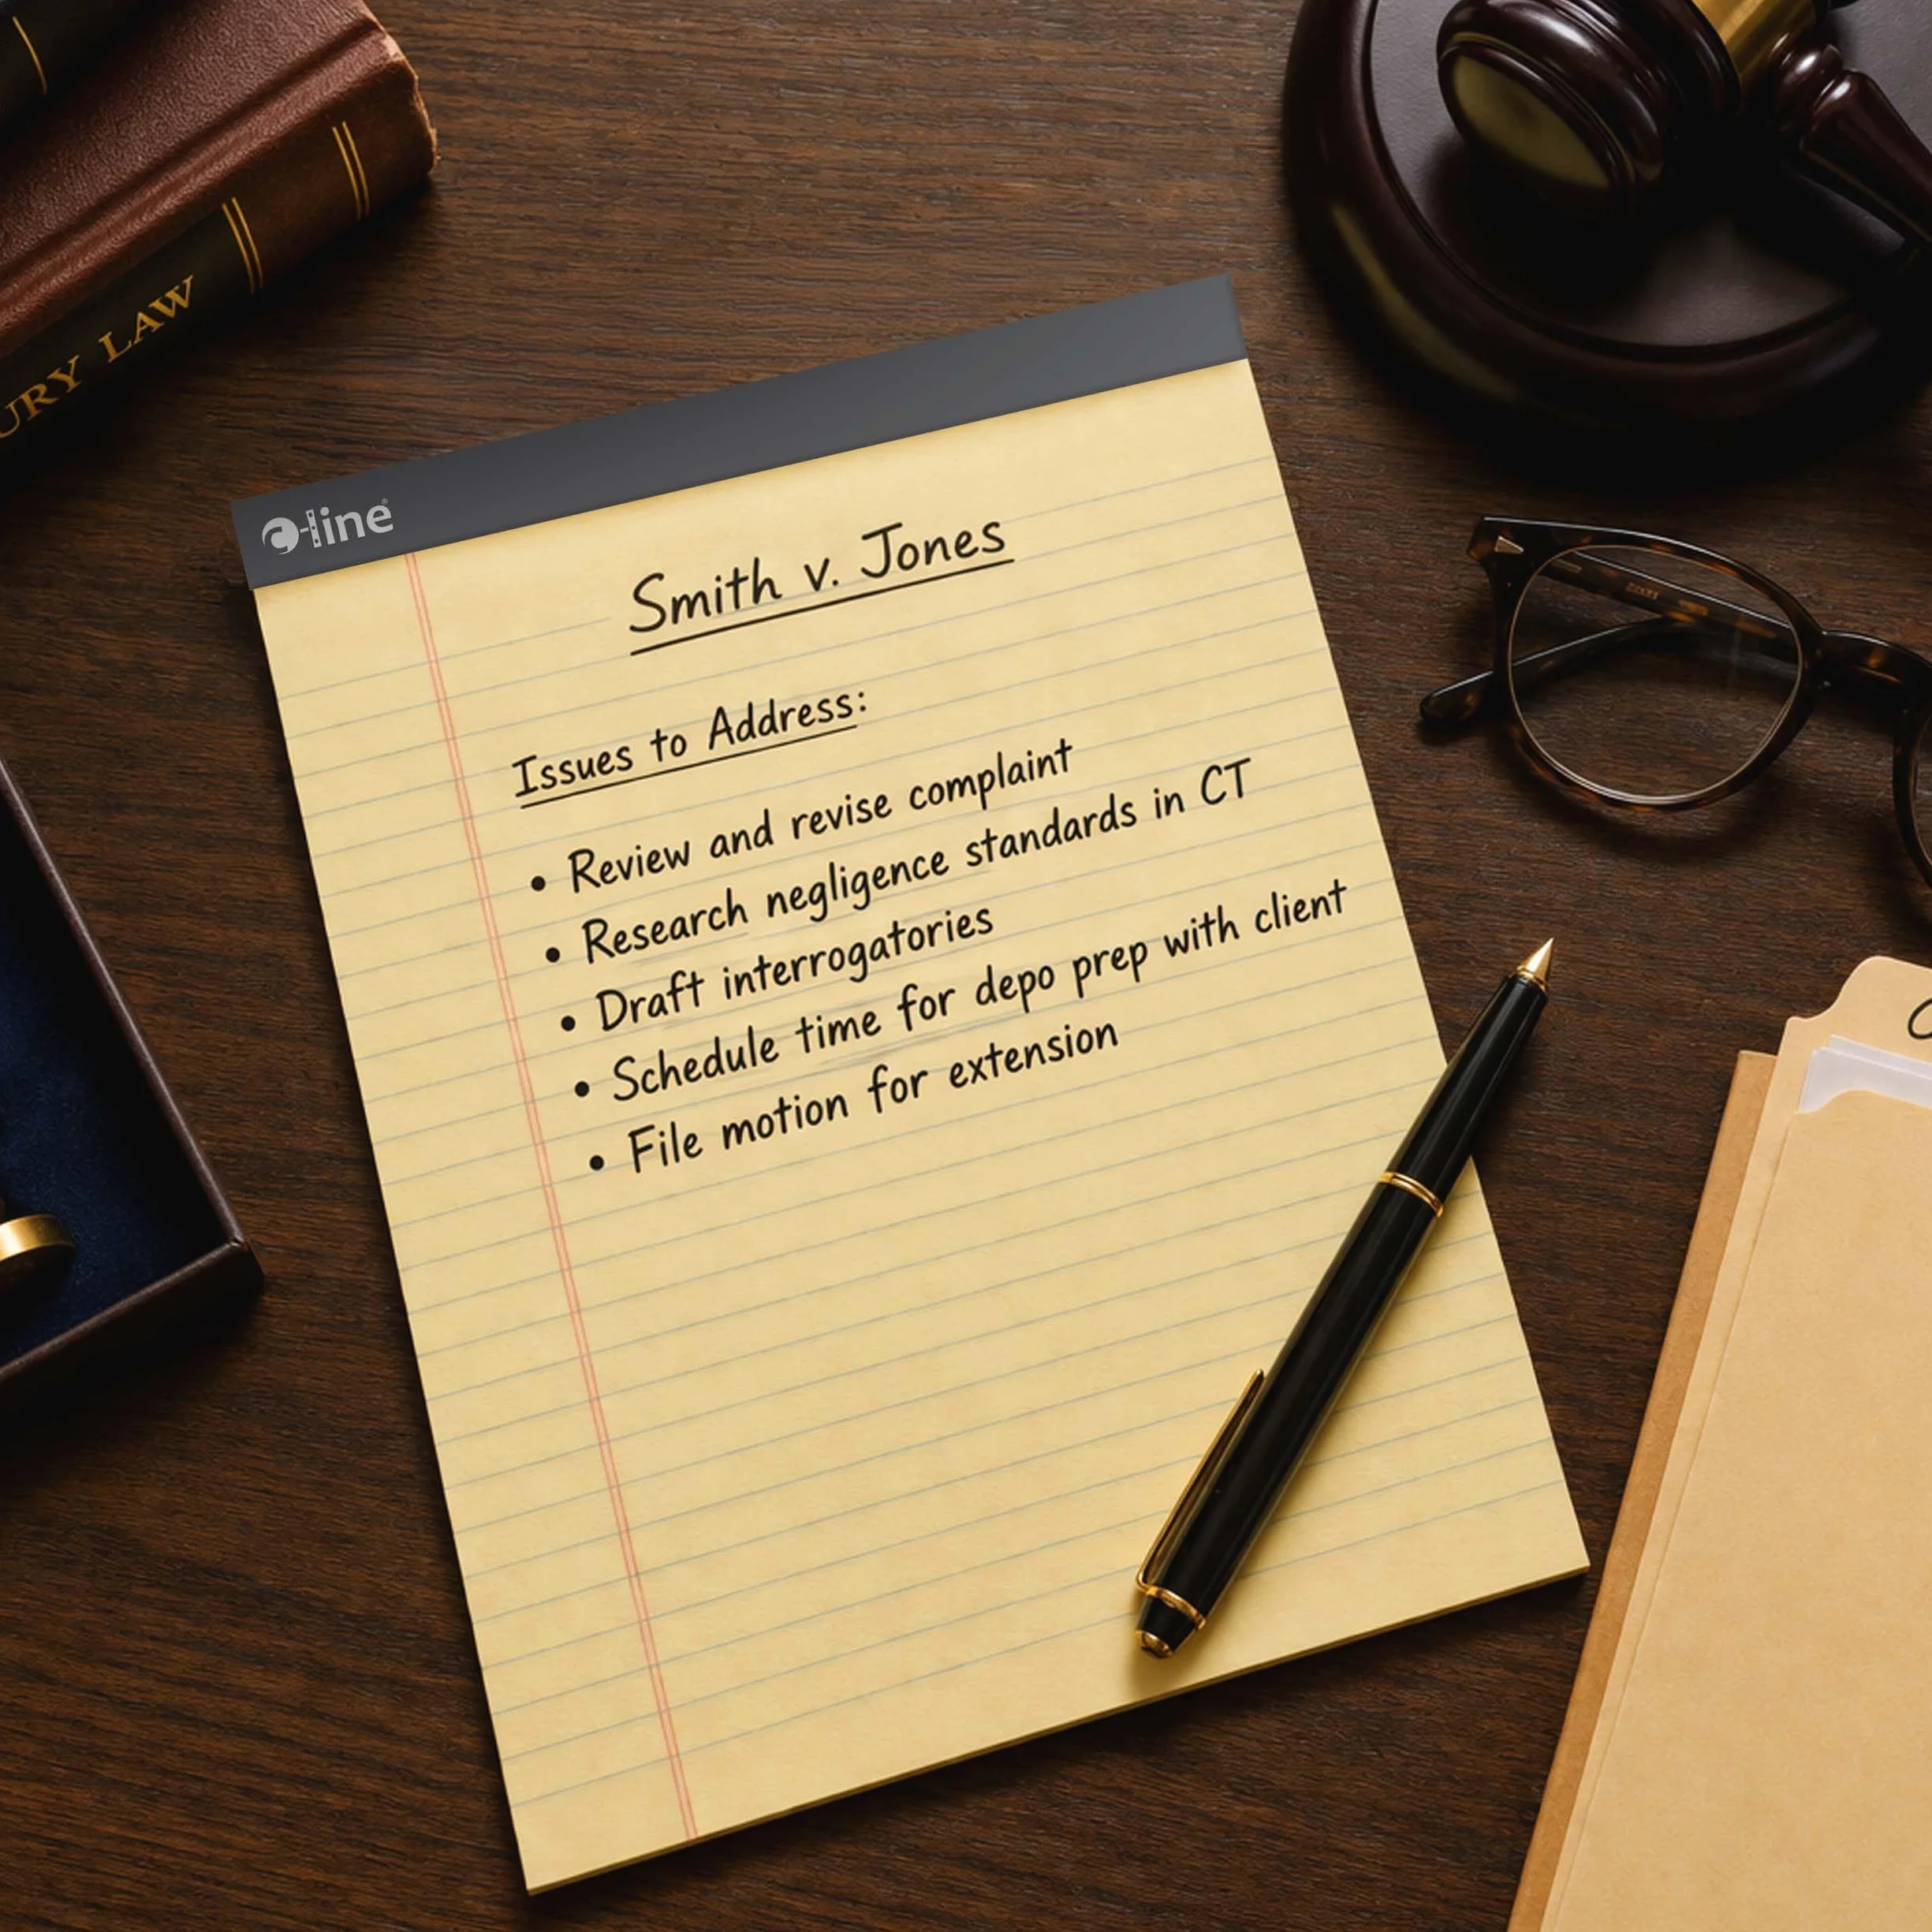 URY LAW
c-line®
Smith v. Jones
Issues to Address:
• Review and revise complaint
• Research negligence standards in CT
• Draft interrogatories
• Schedule time for depo prep with client
• File motion for extension